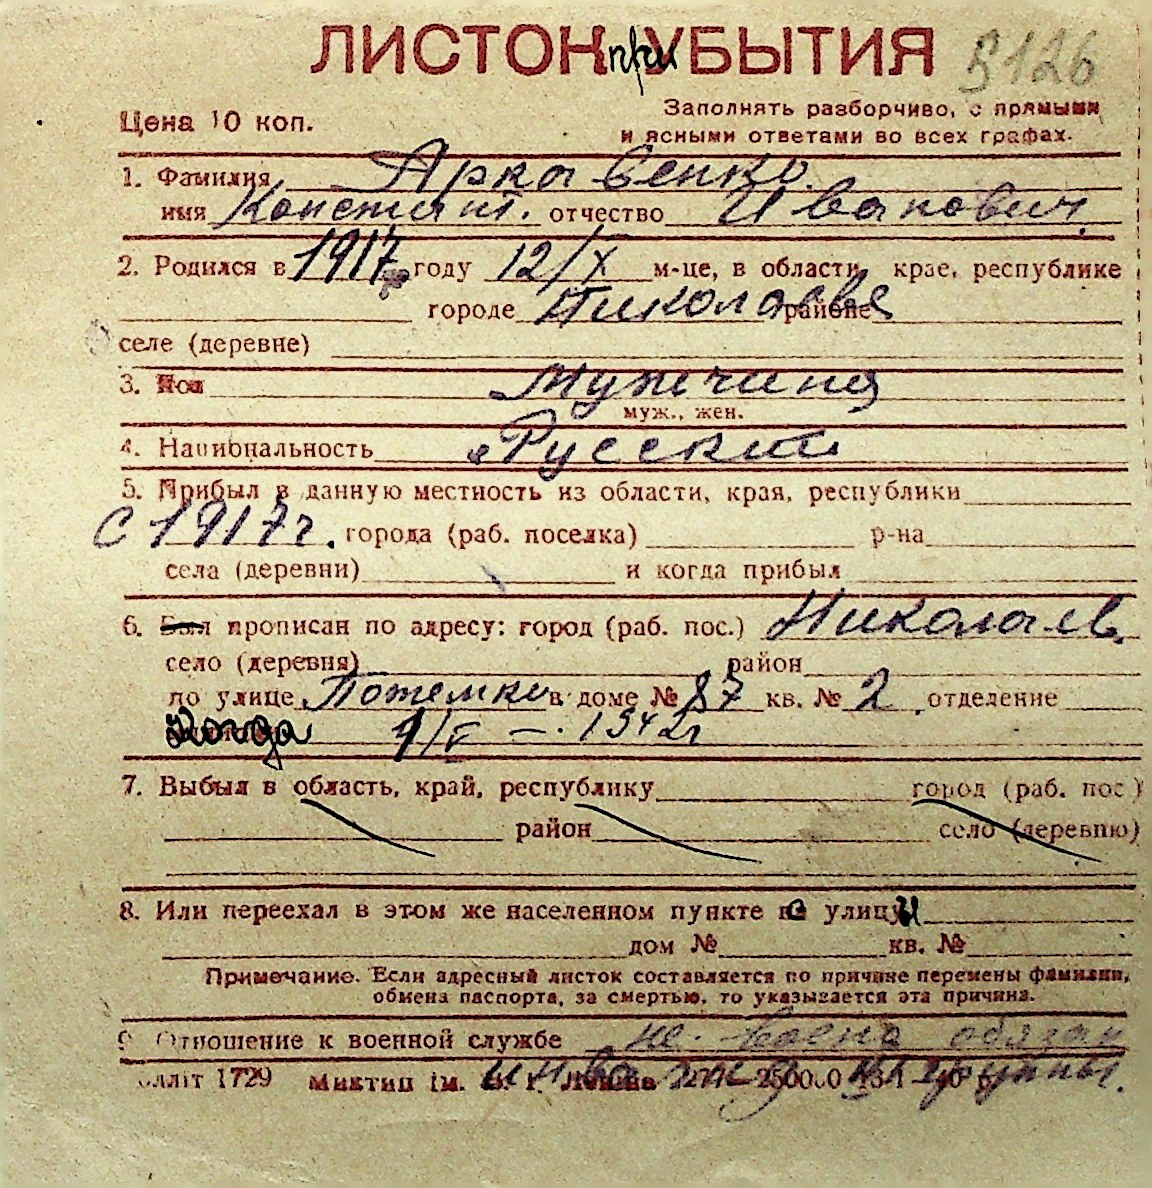 ЛИСТОК при УБЫТИЯ 5126
Цена 10 коп.
Заполнять разборчиво, с прямыми
и ясными ответами во всех графах.
1. Фамилия Аркавенко
имя Констант. отчество Иванович
2. Родился в 1917 году 12/X м-це, в области, крае, республике
городе Николаеве районе
селе (деревне)
3. Пол Мужчина
муж., жен.
4. Национальность Русский
5. Прибыл в данную местность из области, края, республики
с 1917г. города (раб. поселка) р-на
села (деревни) и когда прибыл
6. Был прописан по адресу: город (раб. пос.) Николаев
село (деревня) район
по улице Потемкин в доме № 87 кв. № 2 отделение
Когда 1/V – 1942г
7. Выбыл в область, край, республику город (раб. пос)
район село (деревню)
8. Или переехал в этом же населенном пункте с улицы
дом № кв. №
Примечание. Если адресный листок составляется по причине перемены фамилии,
обмена паспорта, за смертью, то указывается эта причина.
9 Отношение к военной службе не военно обязан
1729 инвалид группы.